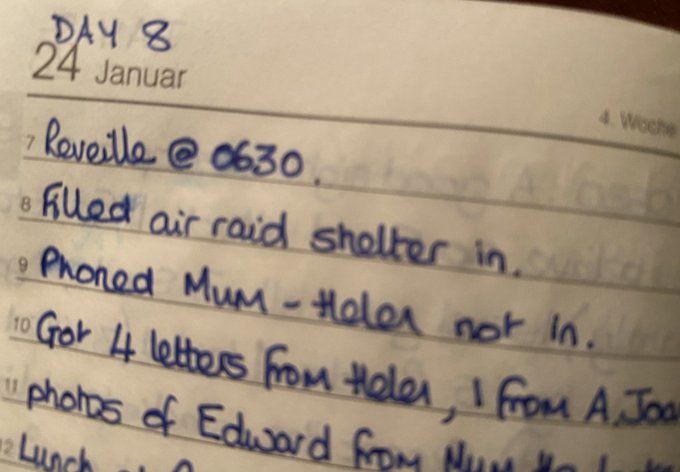 DAY 8
24 Januar
4. Woche
7 Reveille @ 0630.
8 Filled air raid shelter in.
9 Phoned Mum - Helen not in.
10 Got 4 letters from Helen, 1 from A. Joa
11 photos of Edward from Mum
12 Lunch